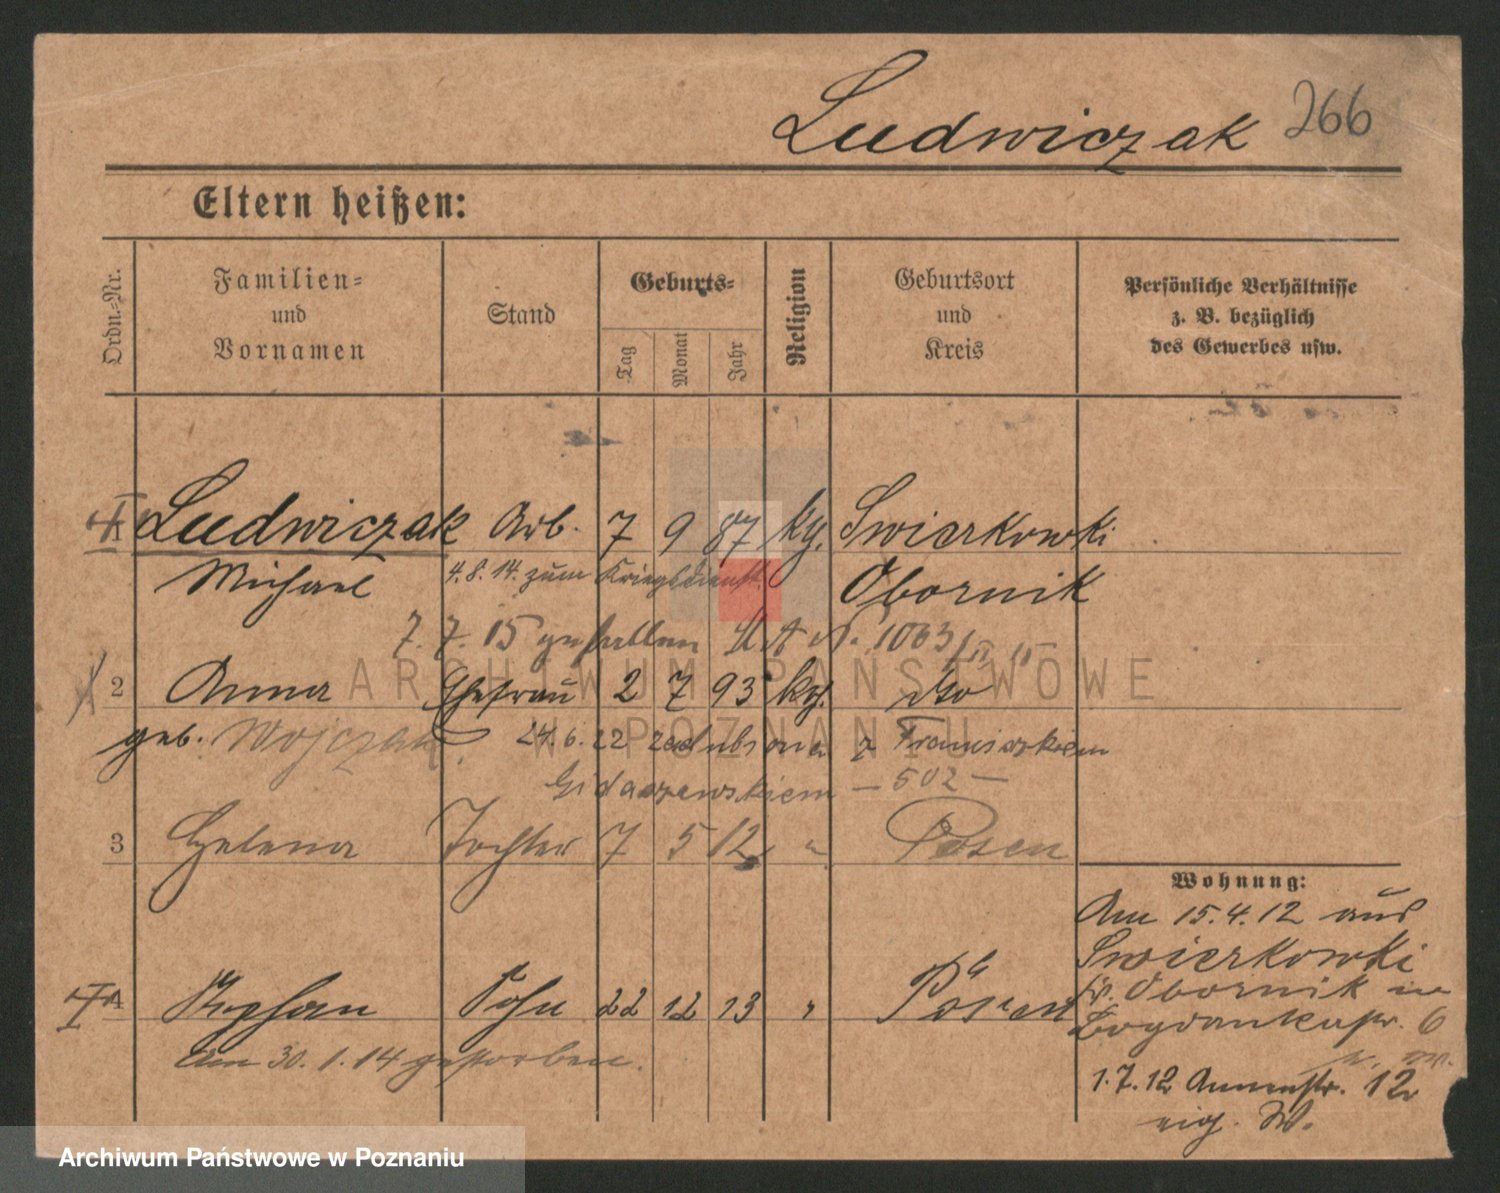 Ludwiczak 266
Eltern heißen:
Ordn.-Nr.
Familien-
und
Vornamen
Stand
Geburts-
Tag
Monat
Jahr
Religion
Geburtsort
und
Kreis
Persönliche Verhältnisse
z. B. bezüglich
des Gewerbes usw.
Ludwiczak Arb. 7 9 87 kg. Swierkowki
Michael 4.8.14. zum Kriegsdienst. Obornik
7.7.15 gefallen St A N. 1063/IV 15
2 Anna Ehefrau 2 7 93 kg. dto
geb. Wojczak. 24.6.22 z Franciszkiem
Gidaszewskiem – 502 –
3 Helena Tochter 7 5 12 " Posen
4 Stephan Sohn 22 12 13 " Posen
am 30.1.14 gestorben.
Wohnung:
Am 15.4.12 aus
Swierkowki
Kr. Obornik in
Bogdankastr. 6
1.7.12 Annenstr. 12
eig. W.
ARCHIWUM PAŃSTWOWE
W POZNANIU
Archiwum Państwowe w Poznaniu